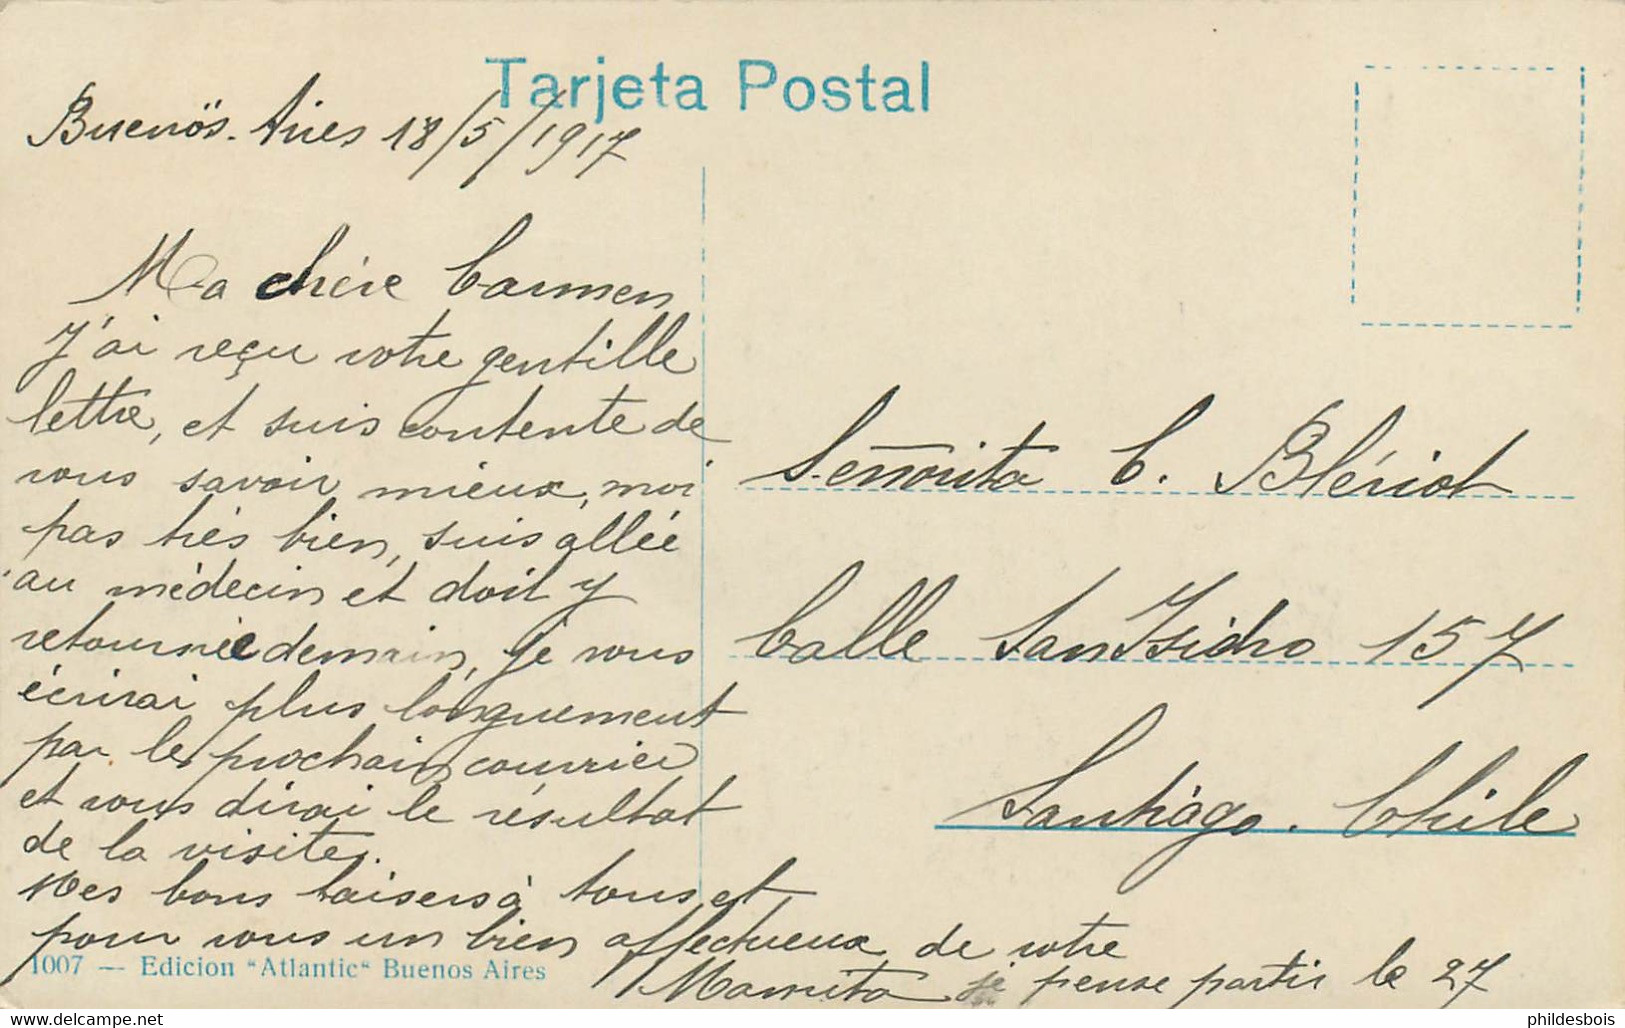 Tarjeta Postal
Buenos-Aires 18/5/1917
Ma chère Carmen,
J'ai reçu votre gentille
lettre, et suis contente de
vous savoir mieux, moi
pas très bien, suis allée
au médecin et doit y
retournée demain, je vous
écrirai plus longuement
par le prochain courrier
et vous dirai le résultat
de la visite.
Mes bons baisers à tous et
pour vous un bien affectueux de votre
Mamita je pense partir le 27
Señorita C. Blériot
Calle San Isidro 157
Santiago. Chile
1007 — Edicion "Atlantic" Buenos Aires
phildesbois